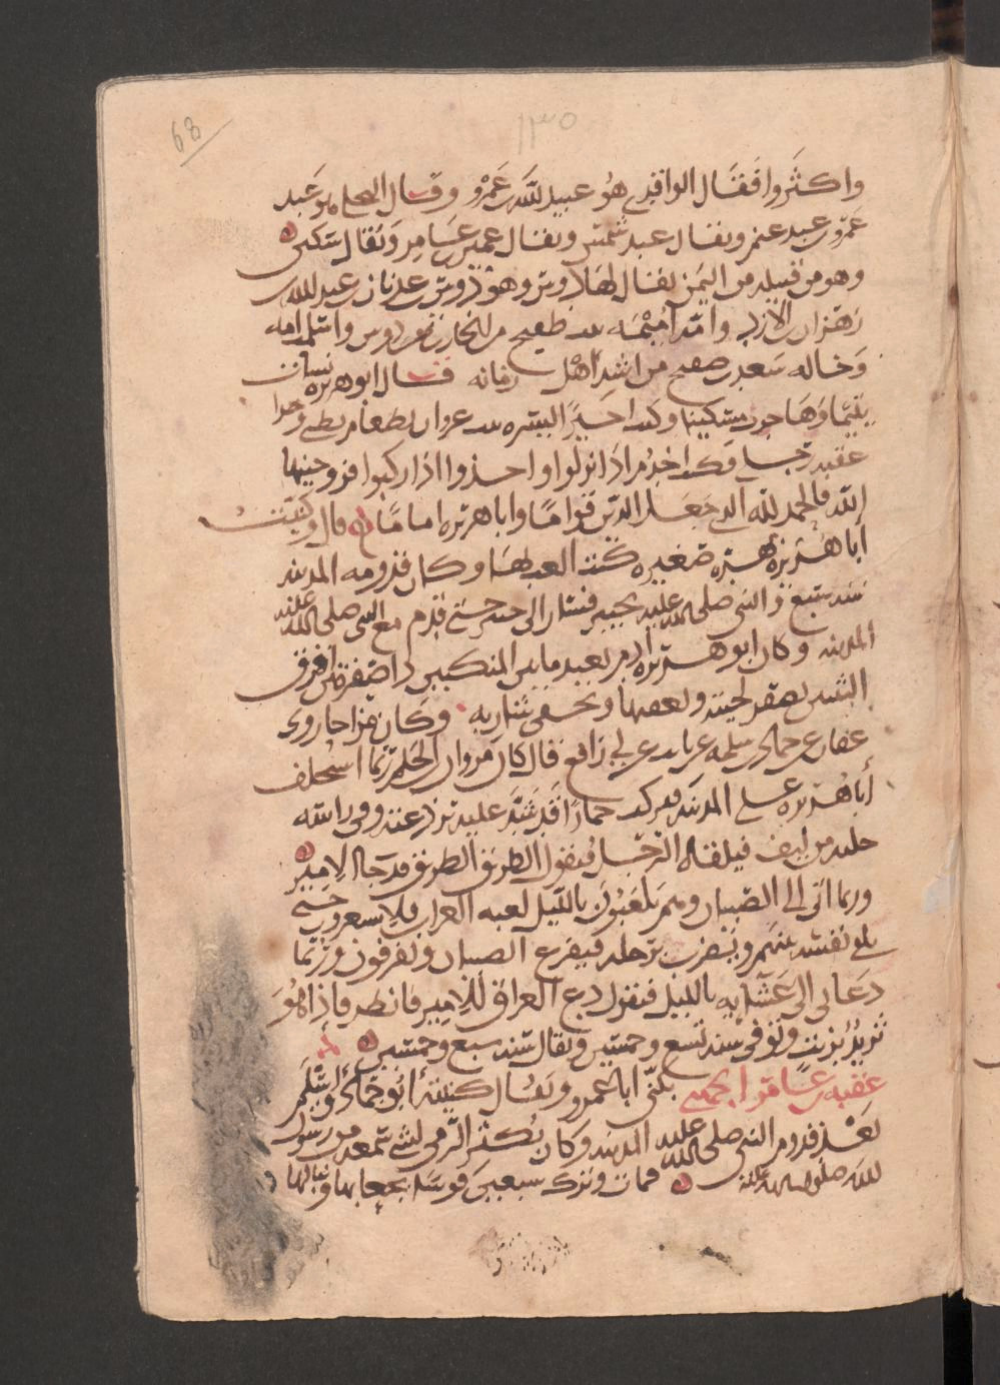 68
١٣٥
واكثروا فقال الواقدي هو عبد الله بن عمرو وقال البجلي هو عبد
عمرو بن عبد غنم ويقال عبد شمس ويقال عمير بن عامر ويقال سكين
وهو من قبيلة من اليمن يقال لها دوس وهو دوس بن عدنان بن عبد الله بن
زهران بن الازد وامه اميمة بنت صفيح بن الحارث من دوس واسلمت امه
وخاله سعد بن صفيح من اشد اهل زمانه قال ابو هريرة نشات
يتيما وهاجرت مسكينا وكنت اجيرا لبسرة بنت غزوان بطعام بطني و
عقبة رجلي فكنت اخدم اذا نزلوا واحدوا اذا ركبوا فزوجنيها
الله فالحمد لله الذي جعل الدين قواما وابا هريرة اماما قال وكنيت
ابا هريرة بهرة صغيرة كنت العب بها وكان قدومه المدينة
سنة سبع والنبي صلى الله عليه بخيبر فسار الى خيبر حتى قدم مع النبي صلى الله عليه
المدينة وكان ابو هريرة ادم بعيد ما بين المنكبين ذا ضفيرتين افرق
الثنيتين يصفر لحيته ويعفيها ويحفي شاربه وكان مزاحا روى
عفان عن حماد بن سلمة عن ثابت عن ابي رافع قال كان مروان بن الحكم ربما استخلف
ابا هريرة على المدينة فيركب حمارا قد شد عليه برذعة وفي راسه
حلبة من ليف فيلقاه الرجل فيقول الطريق الطريق قد جا الامير
وربما اتى الى الصبيان وهم يلعبون بالليل لعبة الغراب فلا يشعرون حتى
يلقي نفسه بينهم ويضرب برجله فيفزع الصبيان ويفرقون وربما
دعاني الى عشايه بالليل فيقول دع العراق للامير فانظر فاذا هو
ثريد بزيت وتوفي سنة تسع وخمسين ويقال سنة سبع وخمسين
عقبة بن عامر الجهني يكنى ابا عمرو ويقال كنيته ابو حماد واسلم
بعد قدوم النبي صلى الله عليه المدينة وكان يكثر الرمي لشي سمعه من رسول
الله صلى الله عليه فمات وترك سبعين قوسا بجعابها ونبالها